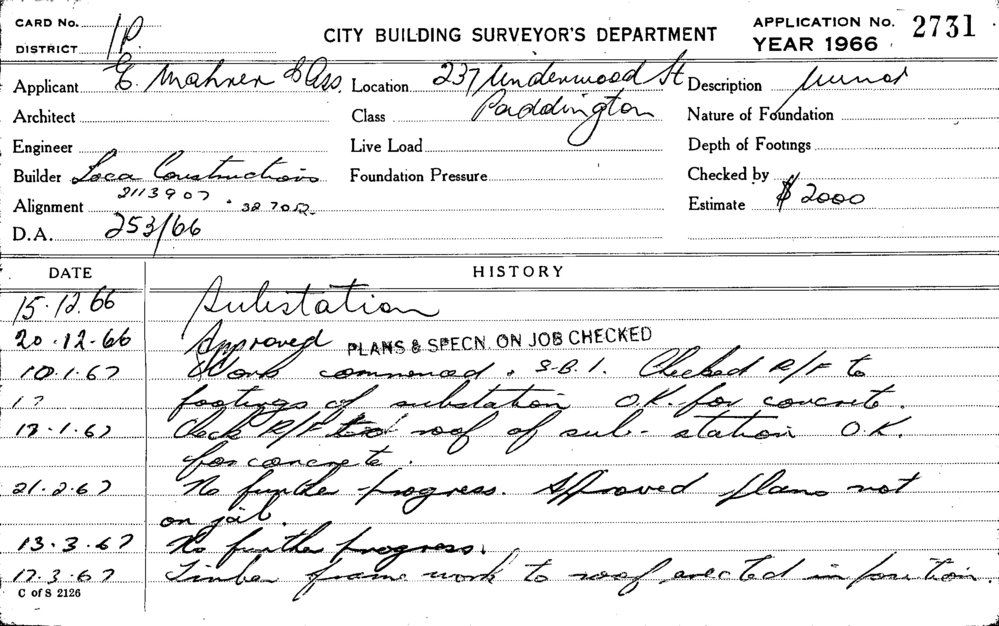 CARD No. 1P.
DISTRICT
CITY BUILDING SURVEYOR'S DEPARTMENT
APPLICATION No. 2731
YEAR 1966
Applicant E. Mahrer & Ass. Location 237 Underwood St Description
Architect Class Paddington Nature of Foundation
Engineer Live Load Depth of Footings
Builder Loca Constructions Foundation Pressure Checked by
Alignment 2113907 . 387052. Estimate $2000
D.A. 253/66
DATE HISTORY
15.12.66 Substation
20.12.66 Approved PLANS & SPECN. ON JOB CHECKED
10.1.67 Work commenced. S.B.1. Checked R/F to
footings of substation O.K. for concrete.
13.1.67 Check R/F to roof of sub-station O.K.
for concrete.
21.2.67 No further progress. Approved plans not
on job.
13.3.67 No further progress.
17.3.67 Timber frame work to roof erected in position.
C of S 2126